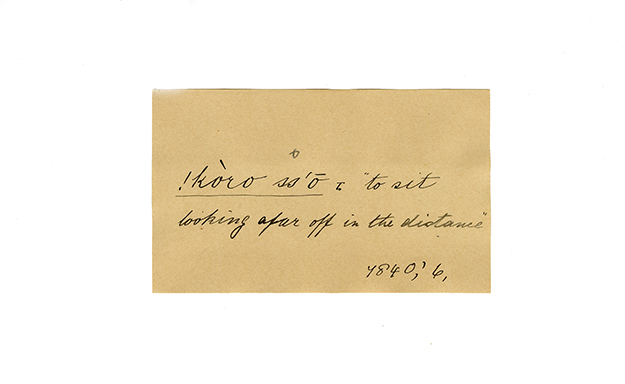 !kòro ss'ō "to sit
looking afar off in the distance"
7840,' 6,